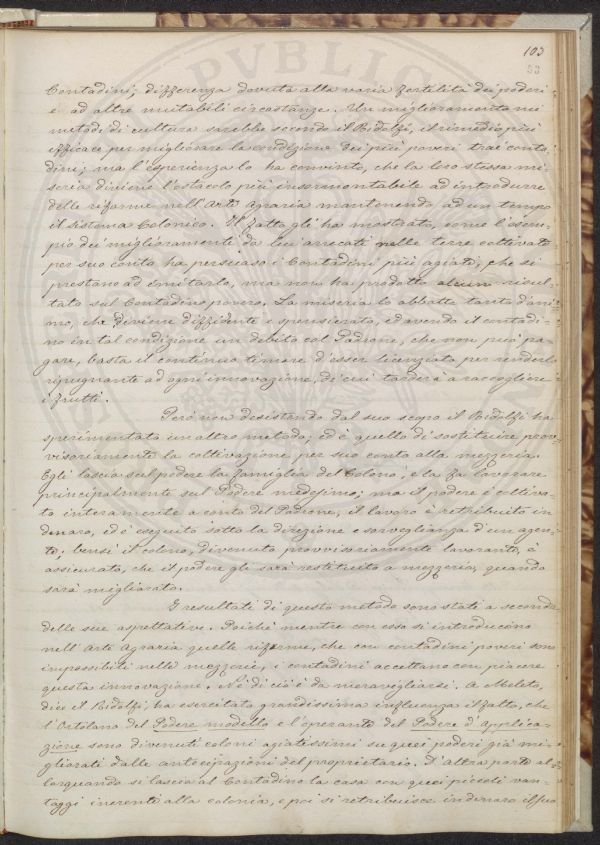 103
53
Contadini; differenza dovuta alla varia fertilità dei poderi
e ad altre mutabili circostanze. Un miglioramento nei
metodi di cultura sarebbe secondo il Ridolfi, il rimedio più
efficace per migliorare la condizione dei più poveri trai conta-
dini; ma l'esperienza lo ha convinto, che la loro stessa mi-
seria diviene l'ostacolo più insormontabile ad introdurre
delle riforme nell'arte agraria mantenendo ad un tempo
il sistema Colonico. Il fatto gli ha mostrato, come l'esem-
pio dei miglioramenti da lui arrecati nelle terre coltivate
per suo conto ha persuaso i Contadini più agiati, che si
prestano ad imitarlo, ma non ha prodotto alcun risul-
tato sul Contadino povero. La miseria lo abbatte tanto d'ani-
mo, che diviene diffidente e spensierato, ed avendo il contadi-
no in tal condizione un debito col Padrone, che non può pa-
gare, basta il continuo timore d'esser licenziato per renderlo
repugnante ad ogni innovazione, di cui tarderà a raccogliere
i frutti.
Però non desistendo dal suo scopo il Ridolfi ha
sperimentato un altro metodo; ed è quello di sostituire prov-
visoriamente la coltivazione per suo conto alla mezzeria.
Egli lascia sul podere la famiglia del Colono, e la fa lavorare
principalmente sul Podere medesimo; ma il podere è coltiva-
to interamente a conto del Padrone, il lavoro è retribuito in
denaro, ed è eseguito sotto la direzione e sorveglianza d'un agen-
te; bensì il colono, divenuto provvisoriamente lavorante, è
assicurato, che il podere gli sarà restituito a mezzeria, quando
sarà migliorato.
I resultati di questo metodo sono stati a seconda
delle sue aspettative. Poichè mentre con esso si introducono
nell'Arte Agraria quelle riforme, che con contadini poveri sono
impossibili nelle mezzerie, i contadini accettano con piacere
questa innovazione. Nè di ciò è da meravigliarsi. A Meleto,
dice il Ridolfi, ha esercitato grandissima influenza il fatto, che
l'Ortolano del Podere modello e l'operante del Podere d'Applica-
zione sono divenuti coloni agiatissimi su quei poderi già mi-
gliorati dalle anticipazioni del proprietario. D'altra parte al-
lorquando si lascia al Contadino la casa con quei piccoli van-
taggi inerenti alla colonia, e poi si retribuisce in denaro il suo